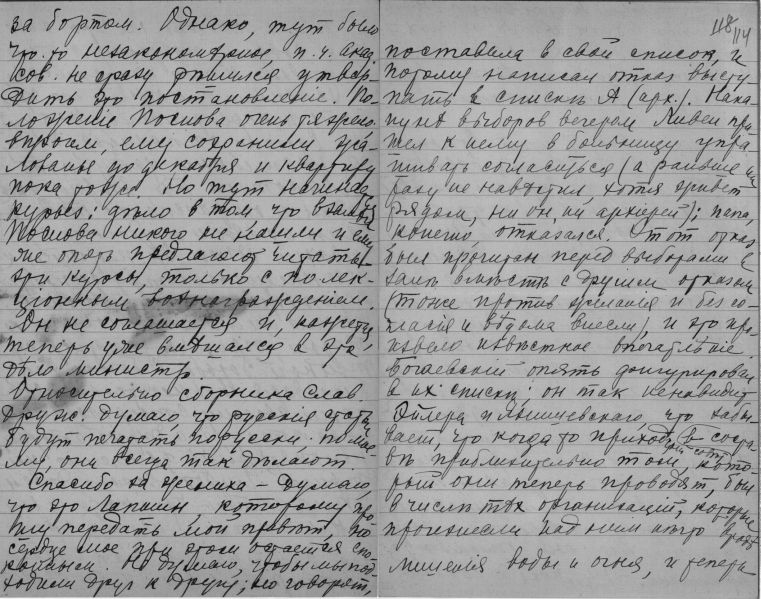 за бортом. Однако, тут было
что-то незакономѣрное, п.ч. акад.
сов. не сразу рѣшился утвер-
дить это постановленіе. По-
ложеніе Поснова очень тяжело.
впрочем, ему сохранили жа-
лованье до декабря и квартиру
пока тоже. Но тут начинается
курьез: дѣло в том что взамѣн
Поснова никого не нашли и ему
же опять предлагают читать
эти курсы, только с по лек-
ціонным вознагражденіем.
Он не соглашается и, кажется,
теперь уже вмѣшался в это
дѣло министр.
Относительно сборника Слав.
Друж. думаю, что русскія статьи
будут печатать по русски, по моему
ли, они всегда так дѣлают.
Спасибо за жениха – думаю,
что это Лапшин, которому про-
шу передать мой привѣт, но
сердце мое при этом остается спо-
койным. Не думаю, чтобы мы под-
ходили друг к другу; но говорят,
118 114
поставила в свой список, и
потому написал отказ высту-
пать в спискѣ А (арх.). Нака-
нунѣ выборов вечером Ливен при-
шел к нему в больницу упра-
шивать согласиться (а раньше ни
разу не навѣстил, хотя живет
рядом, ни он, ни архіерей); папа,
конечно, отказался. Этот отказ
был прочитан перед выборами в
залѣ вмѣстѣ с другим отказом
(тоже против желанія и без со-
гласія и вѣдома внесли), и это про-
извело извѣстное впечатлѣніе.
Богаевскій опять фигурировал
в их спискѣ; он так ненавидит
Эйлера и Янишевскаго, что забы-
вает, что когда то приход в соста-
вѣ приблизительно том, кото-
рый они теперь проводят, был
в числѣ тѣх организацій, которые
произнесли над ним нѣчто вродѣ
лишенія воды и огня, и теперь